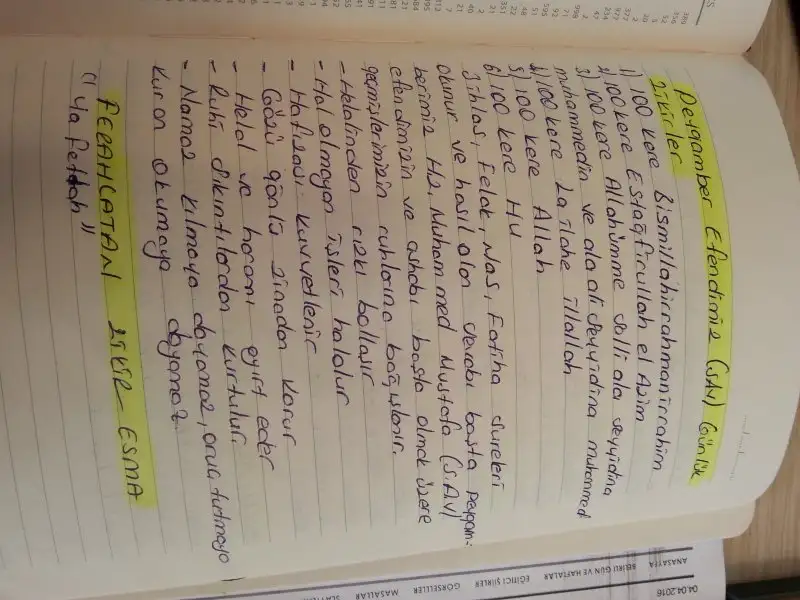 Peygamber Efendimiz (S.A.V) Günlük
Zikirler
1) 100 kere Bismillahirrahmanirrahim
2) 100 kere Estağfirullah el Azim
3) 100 kere Allahümme salli ala seyyidina
muhammedin ve ala ali seyyidina muhammed
4) 100 kere La ilahe illallah
5) 100 kere Allah
6) 100 kere HU
İhlas, Felak, Nas, Fatiha sureleri
okunur ve hasıl olan sevabı başta peygam-
berimiz Hz. Muhammed Mustafa (S.A.V)
efendimizin ve ashabı başta olmak üzere
geçmişlerimizin ruhlarına bağışlanır.
- Helalinden rızkı bollaşır
- Hal olmayan işleri halolur
- Hafızası kuvvetlenir
- Gözü gönlü zinadan korur
- Helal ve haramı ayırt eder
- Ruhi sıkıntılardan kurtulur
- Namaz kılmaya dayanaz, oruç tutmaya
kuran okumaya dayanaz
FERAHLATAN ZİKİR - ESMA
" Ya Fettah "
04.04.2016
ANASAYFA
BELİRLİ GÜN VE HAFTALAR
EĞİTİCİ ŞİİRLER
GÖRSELLER
MASALLAR